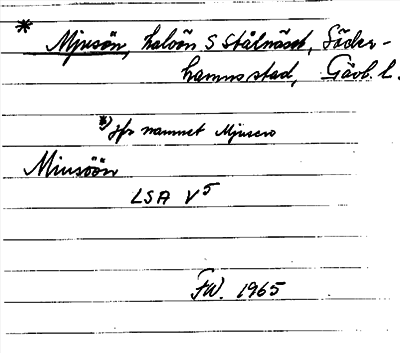 * Mjusön, halvön S Stålnäset, Söder-
hamns stad, Gävb. l.
*) jfr namnet Mjusero
Miusöön
LSA V5
FW. 1965